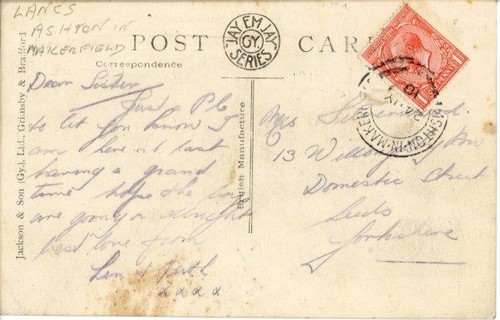 LANCS
ASHTON IN
MAKERFIELD
POST CARD
JAY EM JAY
GY.
SERIES
Correspondence
Jackson & Son (Gy.), Ltd., Grimsby & Bradford
British Manufacture
ASHTON-IN-MAKERF
Dear Sister
Just P.C.
to let you know I
am here at last
having a grand
time hope the boys
are going on allright
best love from
Len & Ruth
xxxx
Mrs
13
Domestic Street
Leeds
Yorkshire